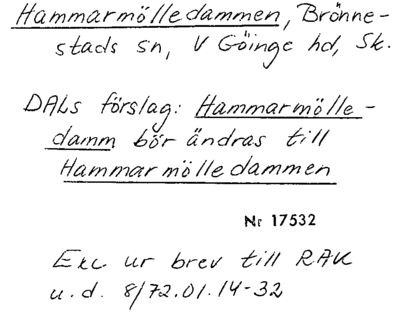 Hammarmölledammen, Brönne-
stads sn, V Göinge hd, Sk.
DALs förslag: Hammarmölle-
damm bör ändras till
Hammarmölledammen
Nr 17532
Exc ur brev till RAK
u.d. 8/72.01.14-32